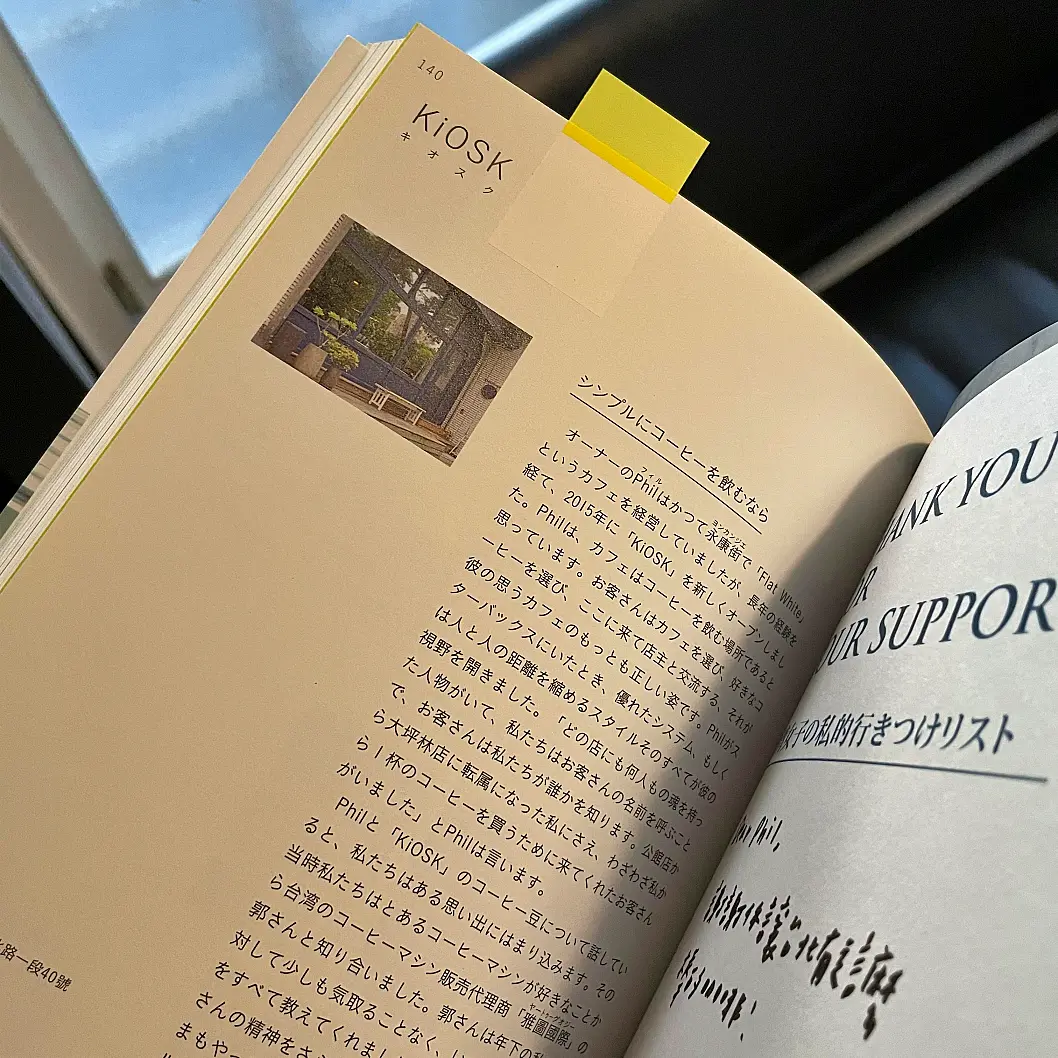 140
KiOSK
キオスク
シンプルにコーヒーを飲むなら
オーナーのPhilはかつて永康街で「Flat White」
フィル
ヨンカンジエ
というカフェを経営していましたが、長年の経験を
経て、2015年に「KiOSK」を新しくオープンしまし
た。Philは、カフェはコーヒーを飲む場所であると
思っています。お客さんはカフェを選び、好きなコ
ーヒーを選び、ここに来て店主と交流する、それが
彼の思うカフェのもっとも正しい姿です。Philがス
ターバックスにいたとき、優れたシステム、もしく
は人と人の距離を縮めるスタイルそのすべてが彼の
視野を開きました。「どの店にも何人もの魂を持っ
た人物がいて、私たちはお客さんの名前を呼ぶこと
で、お客さんは私たちが誰かを知ります。公館店か
ら大坪林店に転属になった私にさえ、わざわざ私か
ら1杯のコーヒーを買うために来てくれたお客さん
がいました」とPhilは言います。
Philと「KiOSK」のコーヒー豆について話してい
ると、私たちはある思い出にはまり込みます。その
当時私たちはとあるコーヒーマシンが好きなことか
ら台湾のコーヒーマシン販売代理商「雅圖國際」の
ヤートゥーグオジー
郭さんと知り合いました。郭さんは年下の私
対して少しも気取ることなく、
をすべて教えてくれまし
さんの精神をさ
まもやっ
路一段40號
ANK YOU
R
UR SUPPOR
女子の私的行きつけリスト
Phil,